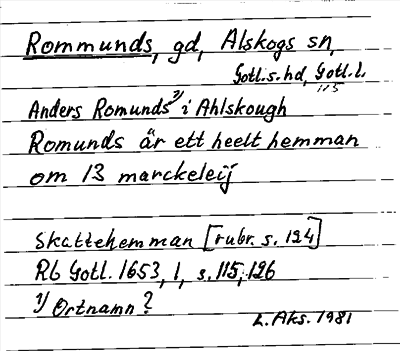 Rommunds, gd, Alskogs sn,
Gotl. s. hd, Gotl. l.
115
Anders Romunds 1) i Ahlskough
Romunds är ett heelt hemman
om 13 marckeleij
Skattehemman [rubr. s. 124]
Rb Gotl. 1653, 1, s. 115, 126
1) Ortnamn?
L. Aks. 1981